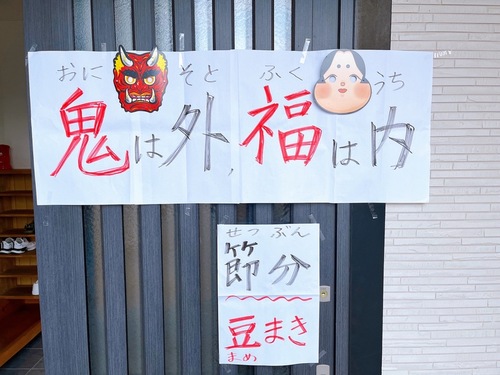 おに そと ふく うち
鬼は外,福は内
せつぶん
節分
豆まき
まめ